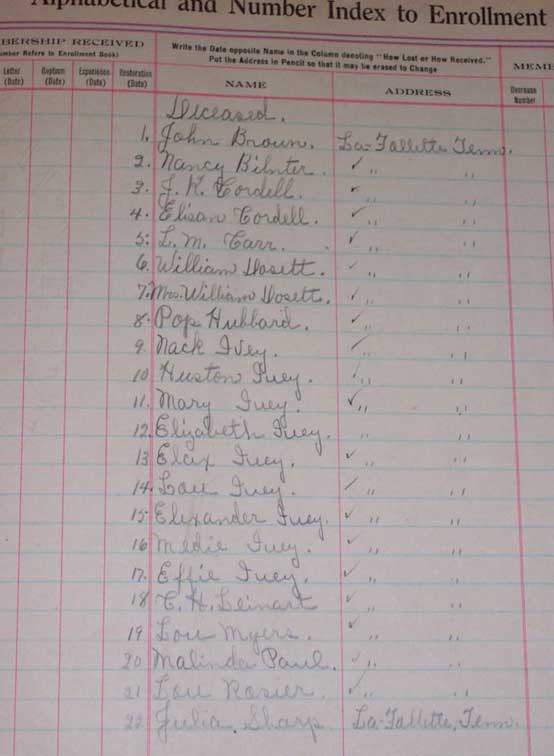 Alphabetical and Number Index to Enrollment
BERSHIP RECEIVED
umber Refers to Enrollment Book)
Write the Date opposite Name in the Column denoting "How Lost or How Received."
Put the Address in Pencil so that it may be erased to Change
MEME
Letter (Date) Baptism (Date) Experience (Date) Restoration (Date)
NAME ADDRESS Decrease Number
Deceased.
1. John Brown. La-Fallette Tenn.
2. Nancy ✓ ,, ,,
3. J. K. Cordell. ✓ ,, ,,
4. Elisan Cordell. ✓ ,, ,,
5: L. M. Carr. ✓ ,, ,,
6. William Dosett. ✓ ,, ,,
7. Mrs. William Dosett. ✓ ,, ,,
8. Pop Hubbard. ✓ ,, ,,
9. Nack Ivey. ✓ ,, ,,
10 Huston Ivey. ✓ ,, ,,
11. Mary Ivey. ✓ ,, ,,
12. Elizabeth Ivey. ,, ,,
13 Ivey. ✓ ,, ,,
14. Lou Ivey. ✓ ,, ,,
15 Elexander Ivey. ✓ ,, ,,
16 Medie Ivey. ✓ ,, ,,
17. Effie Ivey. ✓ ,, ,,
18 C. H. Leinart ✓ ,, ,,
19 Lou Myers. ✓ ,, ,,
20 Malinda Paul. ✓ ,, ,,
21 Lou Rosier. ✓ ,, ,,
22 Julia Sharp La-Fallette, Tenn.